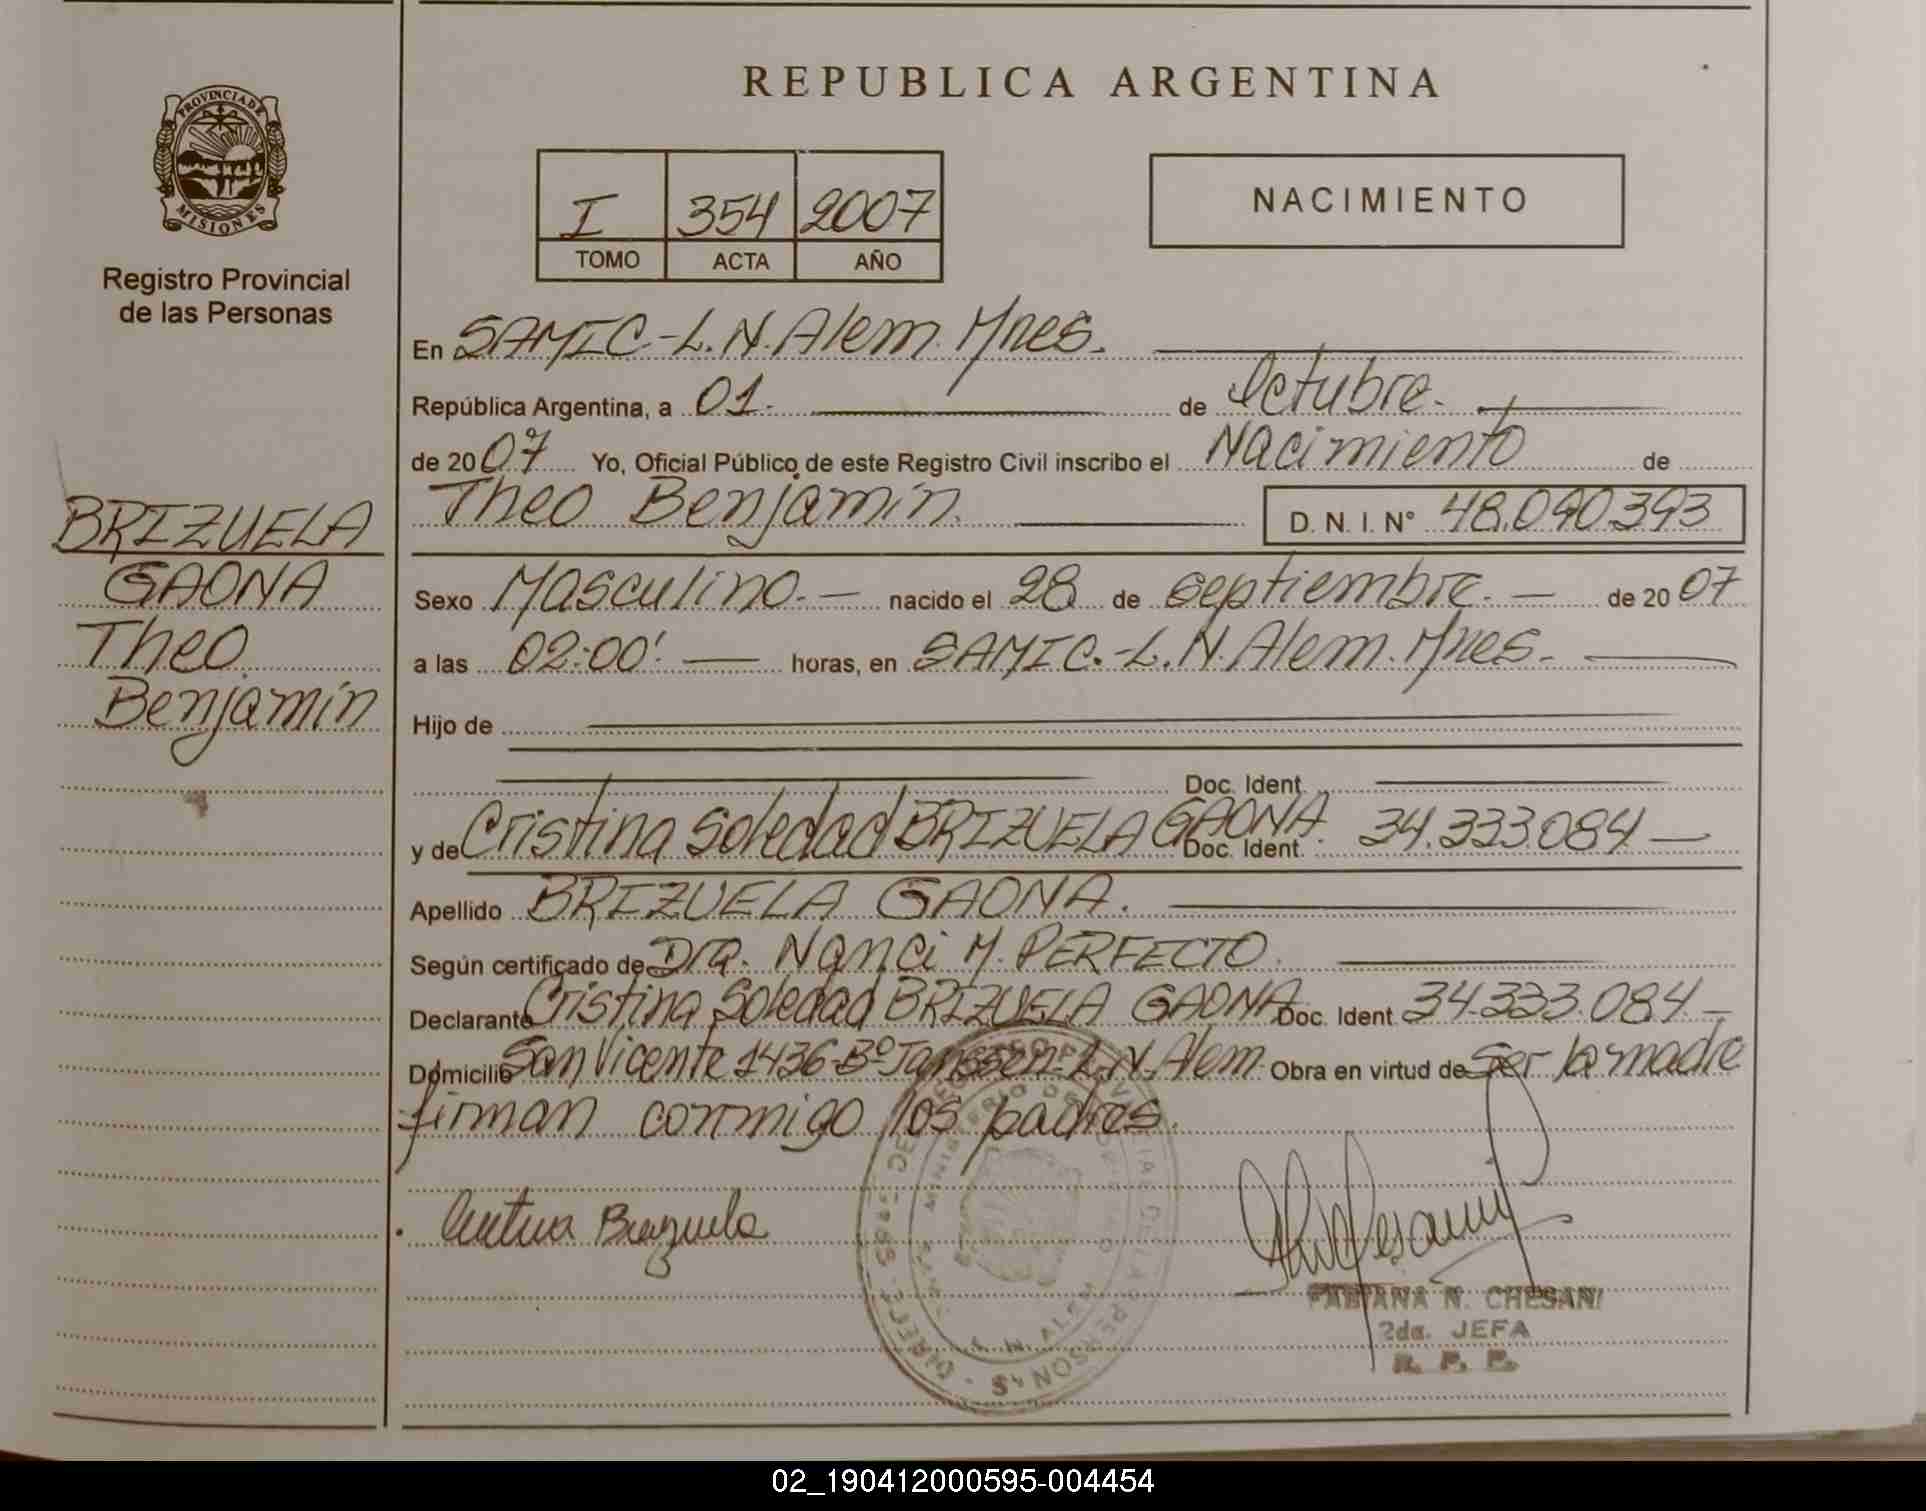 REPUBLICA ARGENTINA
PROVINCIA DE MISIONES
Registro Provincial
de las Personas
I 354 2007
TOMO ACTA AÑO
NACIMIENTO
En SAMIC.-L.N.Alem.Mnes.
República Argentina, a 01. de Octubre.
de 2007 Yo, Oficial Público de este Registro Civil inscribo el Nacimiento de
Theo Benjamín. D. N. I. N° 48.090.393
BRIZUELA
GAONA
Theo
Benjamín
Sexo Masculino.- nacido el 28 de septiembre. - de 2007
a las 02:00'. horas, en SAMIC.-L.N.Alem.Mnes.
Hijo de
Doc. Ident.
y de Cristina Soledad BRIZUELA GAONA. Doc. Ident. 34.333.084
Apellido BRIZUELA GAONA.
Según certificado de Dra. Nanci M. PERFECTO.
Declarante Cristina Soledad BRIZUELA GAONA Doc. Ident. 34.333.084
Domicilio San Vicente 1436-Bº Janssen-L.N.Alem Obra en virtud de ser la madre
firman conmigo los padres.
Brizuela
FABIANA N. CHESANI
2da. JEFA
R. P. P.
02_190412000595-004454